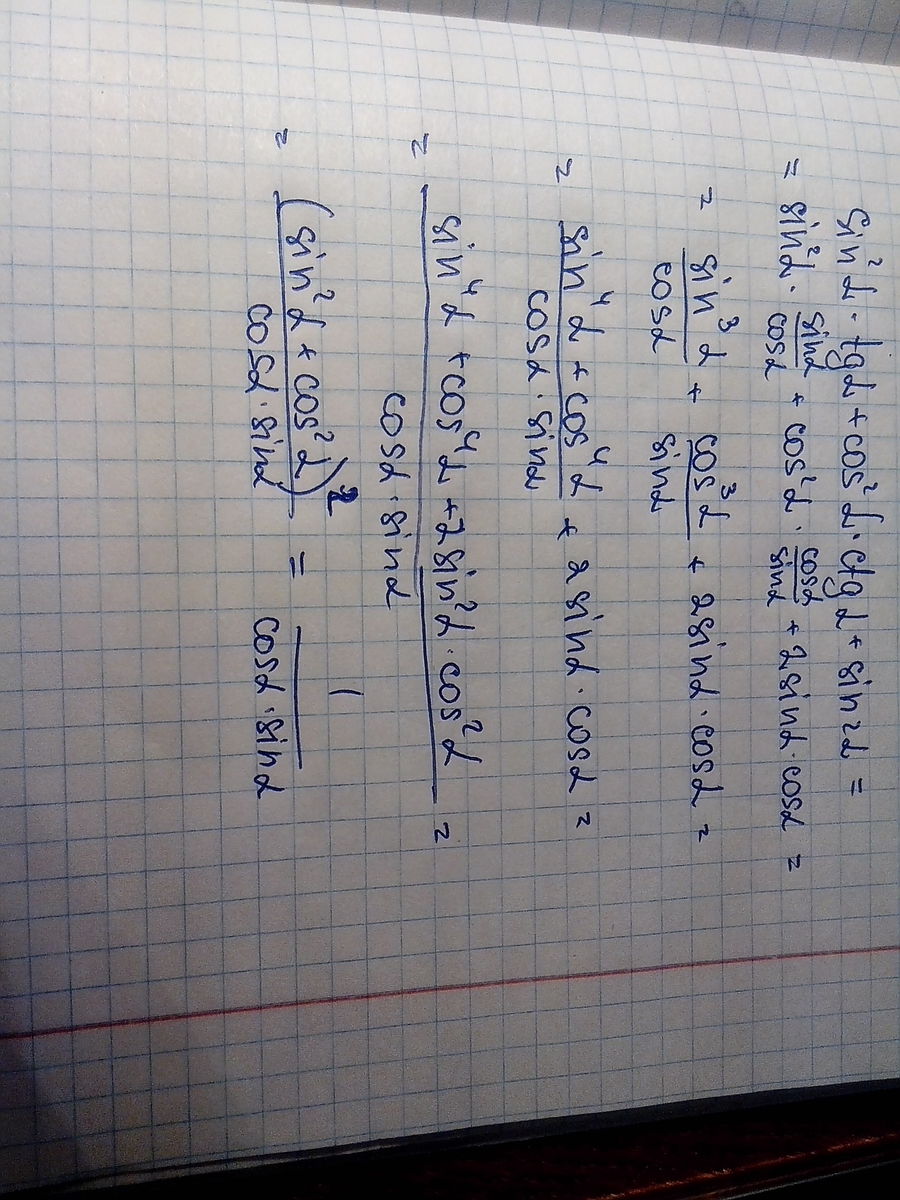 sin²α · tgα + cos²α · ctgα + sin2α =
= sin²α · sinα/cosα + cos²α · cosα/sinα + 2sinα·cosα =
= sin³α/cosα + cos³α/sinα + 2sinα·cosα =
= (sin⁴α + cos⁴α)/(cosα · sinα) + 2 sinα · cosα =
= (sin⁴α + cos⁴α + 2sin²α · cos²α)/(cosα · sinα) =
= (sin²α + cos²α)²/(cosα · sinα) = 1/(cosα · sinα)